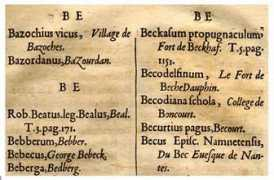 B E
Bazochius vicus, Village de
Bazoches.
Bazordanus, BaZourdan.
B E
Rob. Beatus. leg. Bealus, Beal.
T.5.pag.171.
Bebberum, Bebber.
Bebecus, George Bebeck.
Beberga, Bedberg.
B E
Beckasum propugnaculum
Fort de Beckhaf. T.5.pag.
1151.
Becodelfinum, Le Fort de
BecheDauphin.
Becodiana schola, College de
Boncourt.
Becurtius pagus, Becourt.
Becus Episc. Namnetensis,
Du Bec Euesque de Nan-
tes.